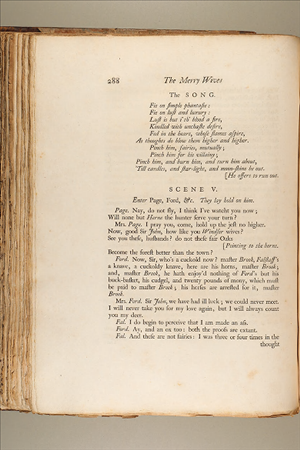 288 The Merry Wives
The SONG.
Fie on sinful phantasie:
Fie on lust and luxury:
Lust is but i'th' blood a fire,
Kindled with unchaste desire,
Fed in the heart, whose flames aspire,
As thoughts do blow them higher and higher.
Pinch him, fairies, mutually;
Pinch him for his villainy:
Pinch him, and burn him, and turn him about,
'Till candles, and star-light, and moon-shine be out.
[He offers to run out.
SCENE V.
Enter Page, Ford, &c. They lay hold on him.
Page. Nay, do not fly, I think I've watcht you now;
Will none but Herne the hunter serve your turn?
Mrs. Page. I pray you, come, hold up the jest no higher.
Now, good Sir John, how like you Windsor wives?
See you these, husbands? do not these fair Oaks
[Pointing to the horns.
Become the forest better than the town?
Ford. Now, Sir, who's a cuckold now? master Brook, Falstaff's
a knave, a cuckoldy knave, here are his horns, master Brook;
and, master Brook, he hath enjoy'd nothing of Ford's but his
buck-basket, his cudgel, and twenty pounds of mony, which must
be paid to master Brook; his horses are arrested for it, master
Brook.
Mrs. Ford. Sir John, we have had ill luck; we could never meet.
I will never take you for my love again, but I will always count
you my deer.
Fal. I do begin to perceive that I am made an ass.
Ford. Ay, and an ox too: both the proofs are extant.
Fal. And these are not fairies: I was three or four times in the
thought